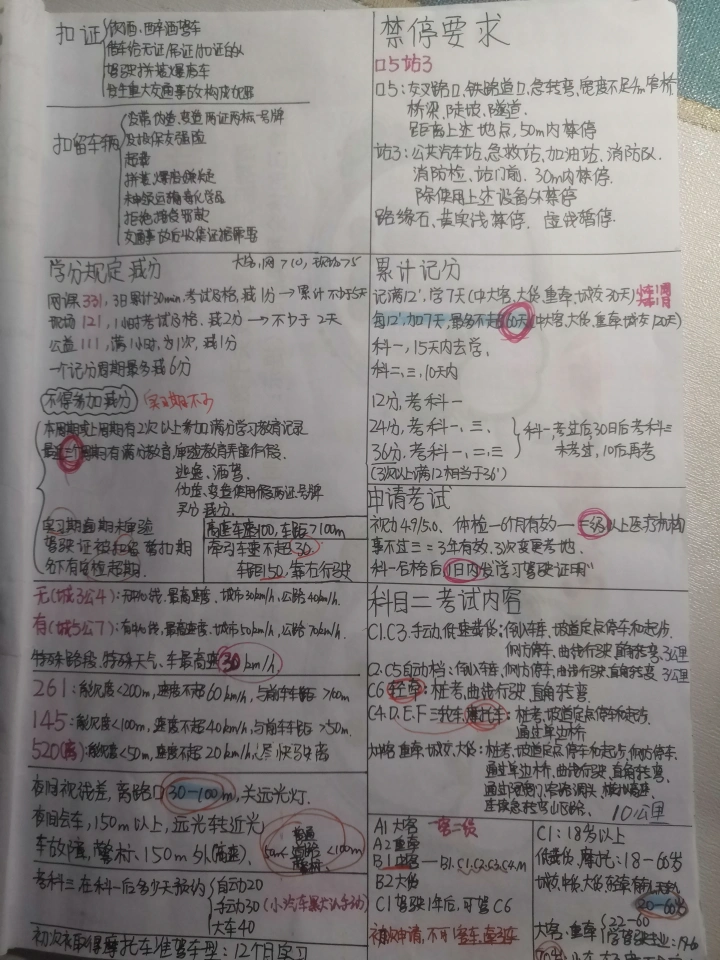 扣证
饮酒、醉酒驾车
借车给无证/吊证/扣证的人
驾驶拼装、报废车
发生重大交通事故构成犯罪
扣留车辆
伪造、变造两证两标一号牌
超载
拒绝接受罚款
交通事故后收集证据需要
禁停要求
口5站3
口5：交叉路口、铁路道口、急转弯、宽度不足4m窄桥
桥梁、陡坡、隧道.
距离上述地点，50m内禁停
站3：公共汽车站、急救站、加油站、消防队、
消防栓、站门前、30m内禁停.
除使用上述设备外禁停
路缘石、黄实线禁停. 虚线暂停.
学分规定 减分
网课331，3日累计30min，考试及格，减1分→累计不少于5天
现场121，1小时考试及格，减2分→不少于2天
公益111，满1小时，为1次，减1分
一个记分周期最多减6分
不得参加减分
(实习期不可
本周期或上周期有2次以上参加满分学习教育记录
最近三个周期有满分教育、审验教育弄虚作假.
酒驾.
伪造、变造使用假两证号牌
买分减分.
实习期逾期未审验
驾驶证被扣留暂扣期
高速车速100，车距>100m
牵引车速不超30.
车距150，靠右行驶
累计记分
记满12'，学7天(中大客、大货、重牵、城交30天)
每12'，加7天，最多不超60天(中大客、大货、重牵、城交120天)
科一，15天内去学.
科二、三，10天内
12分，考科一
24分，考科一、三、
36分，考科一、二、三
(3次以上满12相当于36')
科一，考过后，30日后考科三
未考过，10后再考
申请考试
视力4.9/5.0. 体检—6个月有效—二级以上医疗机构
事不过三=3年有效. 3次变更考地.
科一合格后1日内发"学习驾驶证明"
无(城3公4)：无中心线、最高速度、城市30km/h，公路40km/h.
有(城5公7)：有中心线、最高速度、城市50km/h，公路70km/h.
特殊路段、特殊天气、车最高速30km/h
261：能见度<200m，速度不超60km/h，与前车车距>100m
145：能见度<100m，速度不超40km/h，与前车车距>50m.
520(离)：能见度<50m，速度不超20km/h，尽快驶离
科目二考试内容
C1、C3、手动、低速载货：倒入车库、坡道定点停车和起步.
侧方停车、曲线行驶、直角转弯 3公里
C2、C5自动档：倒入车库、侧方停车、曲线行驶、直角转弯. 3公里
C6轻牵：桩考、曲线行驶、直角转弯.
C4、D、E、F三轮车、摩托车：桩考、坡道定点停车和起步.
通过单边桥
大中客、重牵、城交、大货：桩考、坡道定点停车和起步、侧方停车.
通过单边桥、曲线行驶、直角转弯.
连续急转弯山区路. 10公里
夜间视线差，离路口30-100m，关远光灯.
夜间会车，150m以上，远光车转近光
车故障，警示、150m外(高速).
普通
50m<道路<100m
考科三在科一后多少天预约
自动20
手动30(小汽车默认为手动)
大车40
初次取得摩托车准驾车型：12个月实习
A1大客
A2重牵
B1中客—B1、C1、C2、C3、C4、M
B2大货
C1驾驶1年后，可驾C6
初次申请，不可
C1：18岁以上
低载货、摩托：18-60岁
20-60岁
大客、重牵
22-60